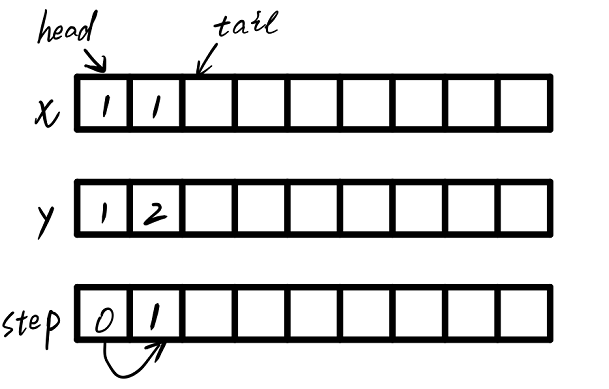 head tail
x 1 1
y 1 2
step 0 1